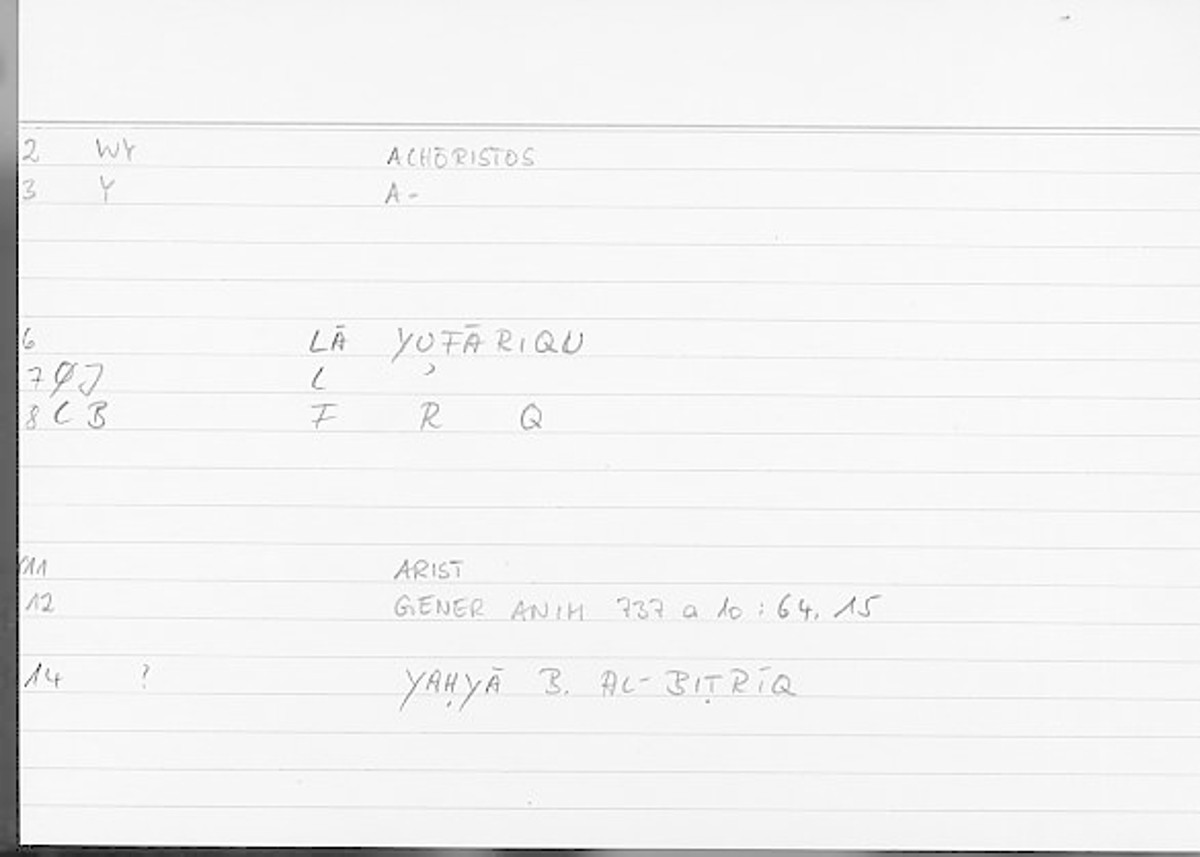 2 WY ACHŌRISTOS
3 Y A-
6 LĀ YUFĀRIQU
7 ØJ L ʾ
8 LB F R Q
11 ARIST
12 GENER ANIM 737 a 10 : 64, 15
14 ? YAḤYĀ B. AL-BIṬRĪQ